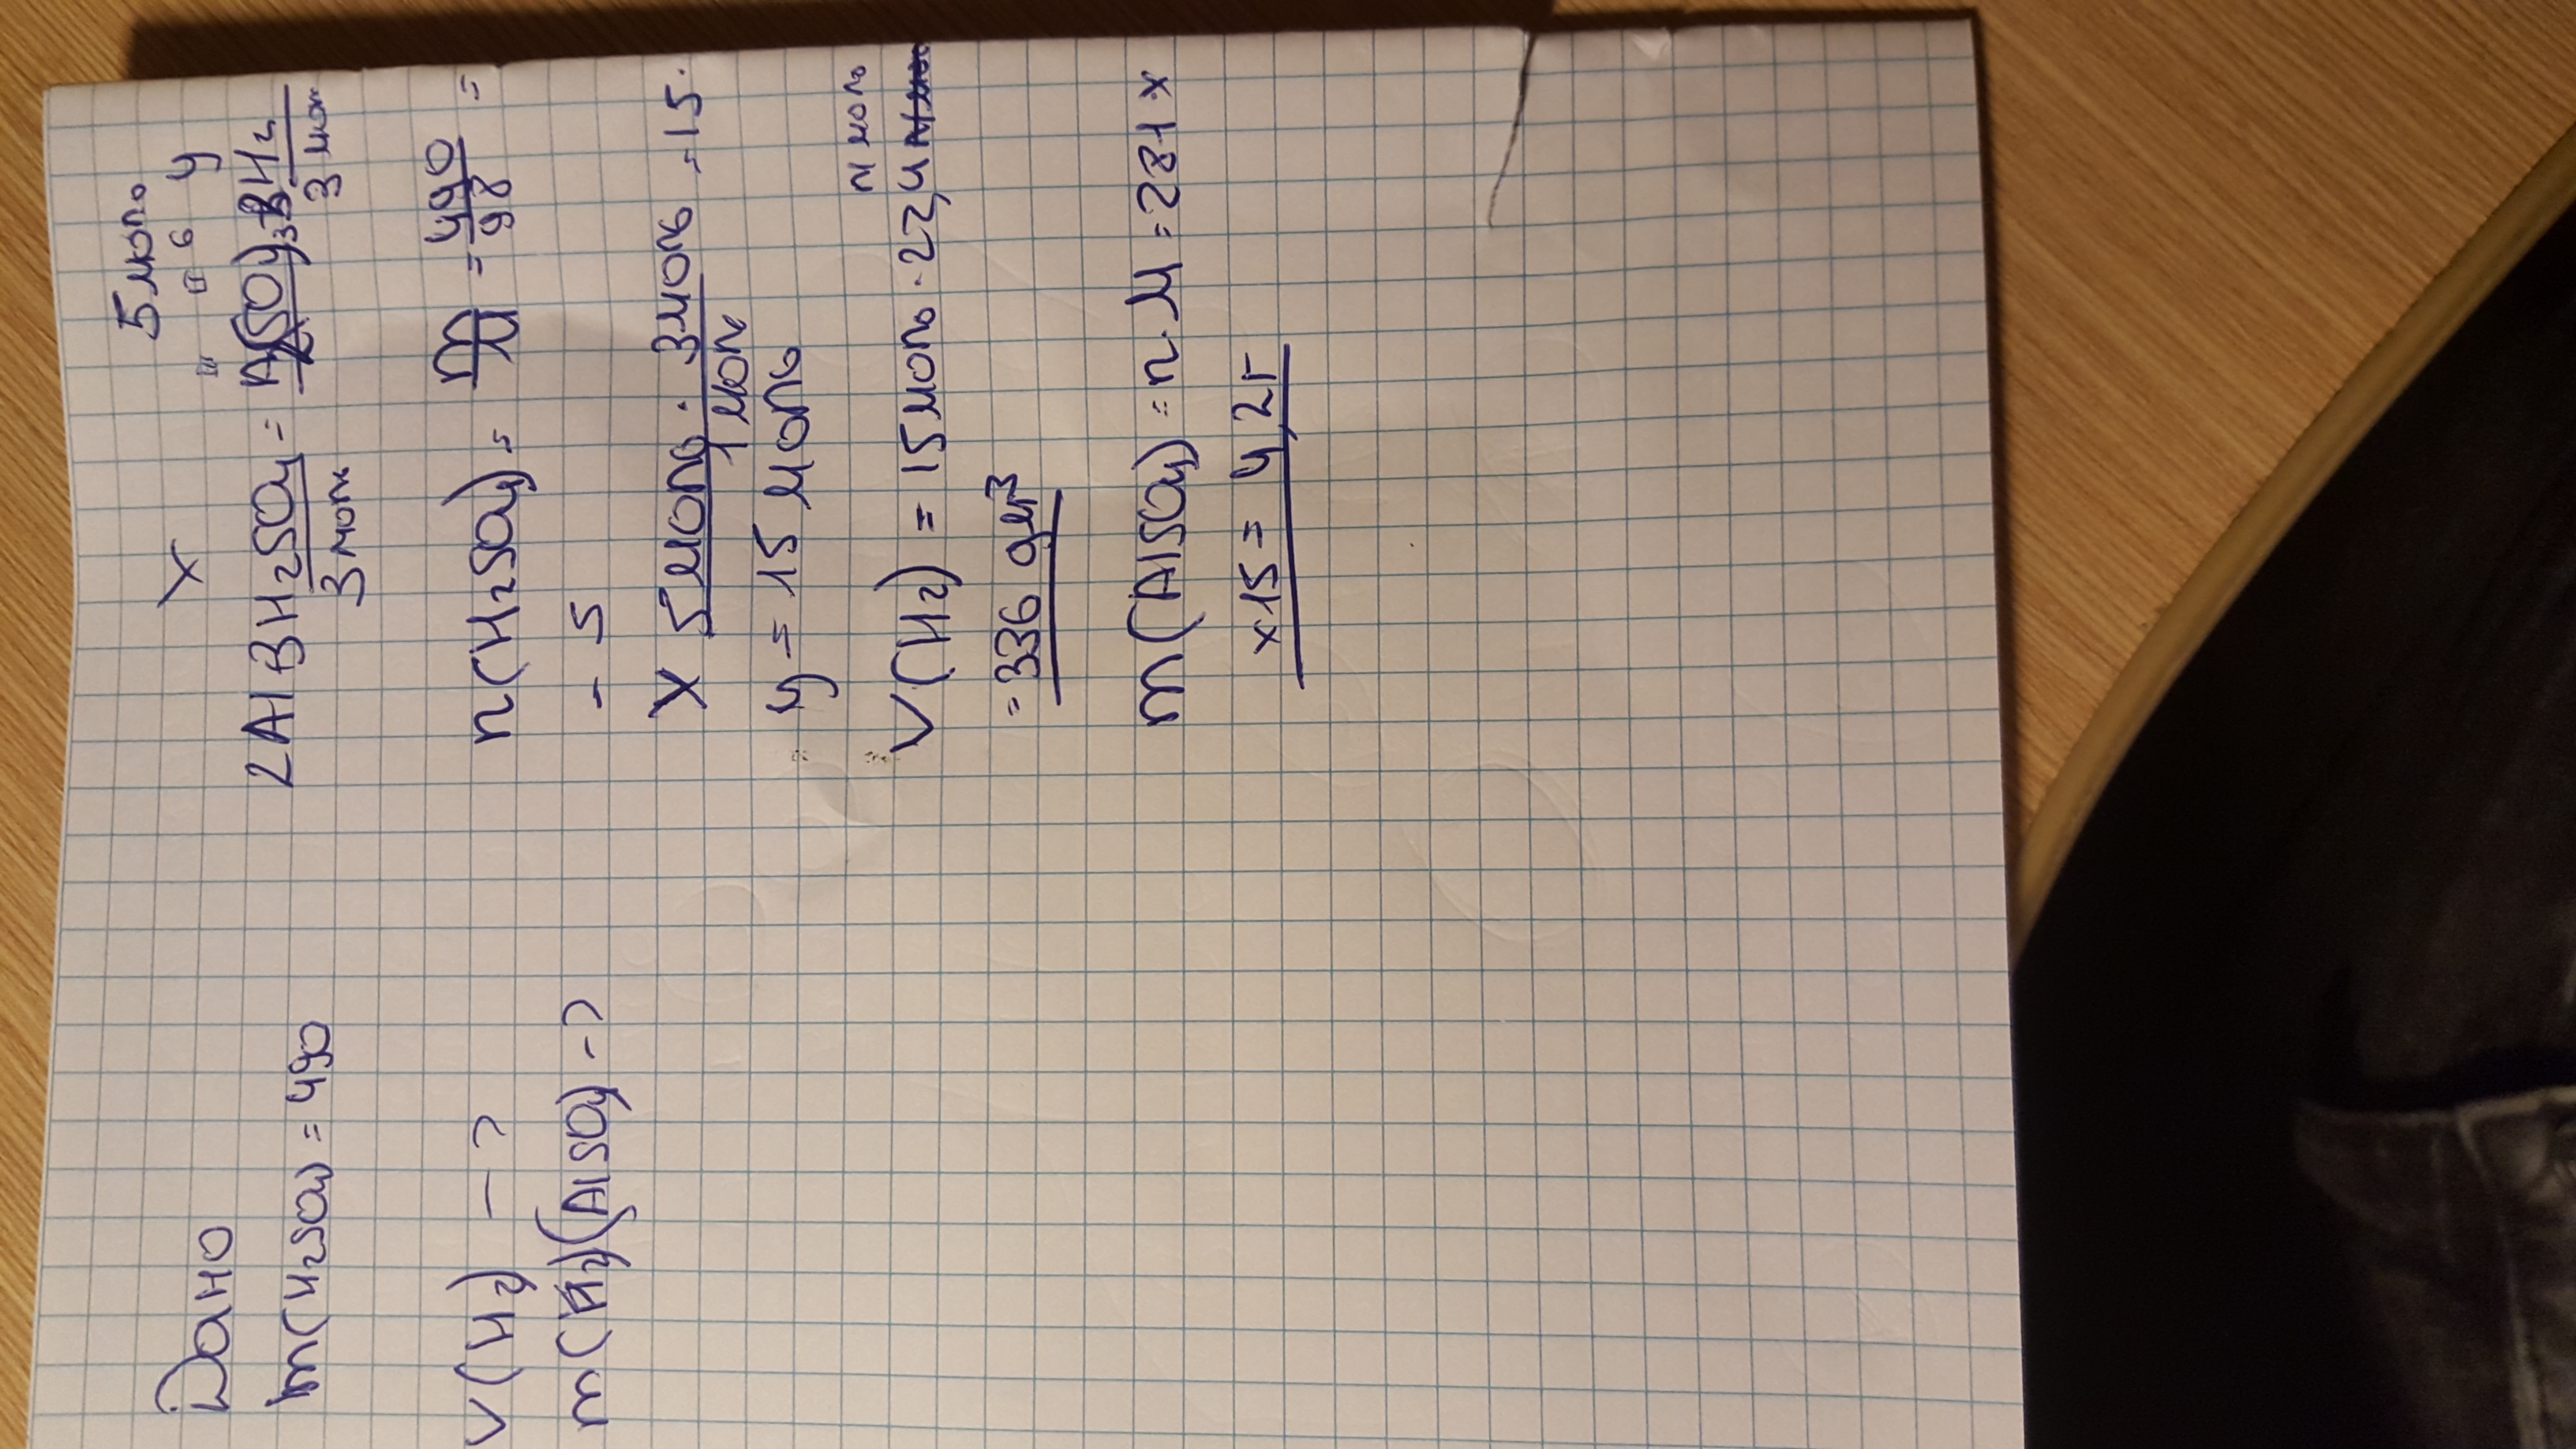 Дано
m(H2SO4) = 490
V(H2) — ?
m(H2)(AlSO4) - ?
5 моль
x III II 6 y
2Al 3H2SO4 = Al2(SO4)3 3H2
3 моль 3 мол
n(H2SO4) = m/M = 490/98 =
= 5
x 5 моль · 3 моль / 1 моль = 15.
y = 15 моль
л моль
V(H2) = 15 моль · 22,4
= 336 дм3
m(AlSO4) = n · M = 281 x
x 15 = 4,2 г